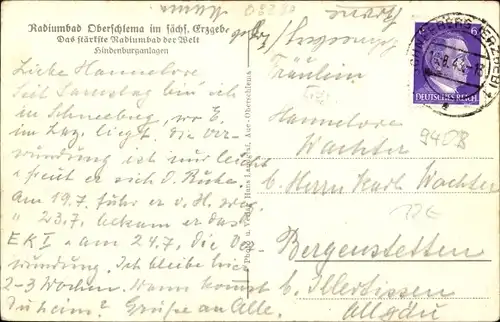 03230
Radiumbad Oberschlema im sächs. Erzgebe
Das stärkste Radiumbad der Welt
Hindenburganlagen
Liebe Hannelore
Seit Samstag bin ich
in Schneeberg, wo E.
im Laz. liegt. die Ver-
wundung ist nur leicht
+ freut er sich d. Ruhe.
Am 19.7. fuhr er v. H. weg
" 23.7. bekam er das
EK I. + am 24.7. die Ver-
wundung. Ich bleibe hier
2-3 Wochen. Wann kommst
Du heim? Grüße an Alle.
Photo u. Verlag Hans Aue-Oberschlema
SCHNEEBERG (ERZGEB)
8.43
6
DEUTSCHES REICH
Fräulein
Hannelore
Wachter
9408
b. Herrn Karl Wachter
Bergenstetten
b. Illertissen
Allgäu